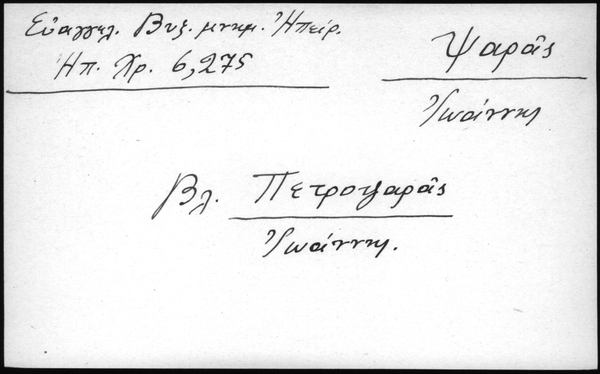 Εὐαγγελ. Βυζ. μνημ. Ἠπείρ.
Ἠπ. Χρ. 6,275
Ψαρᾶς
Ἰωάννης
Βλ. Πετροψαρᾶς
Ἰωάννης.